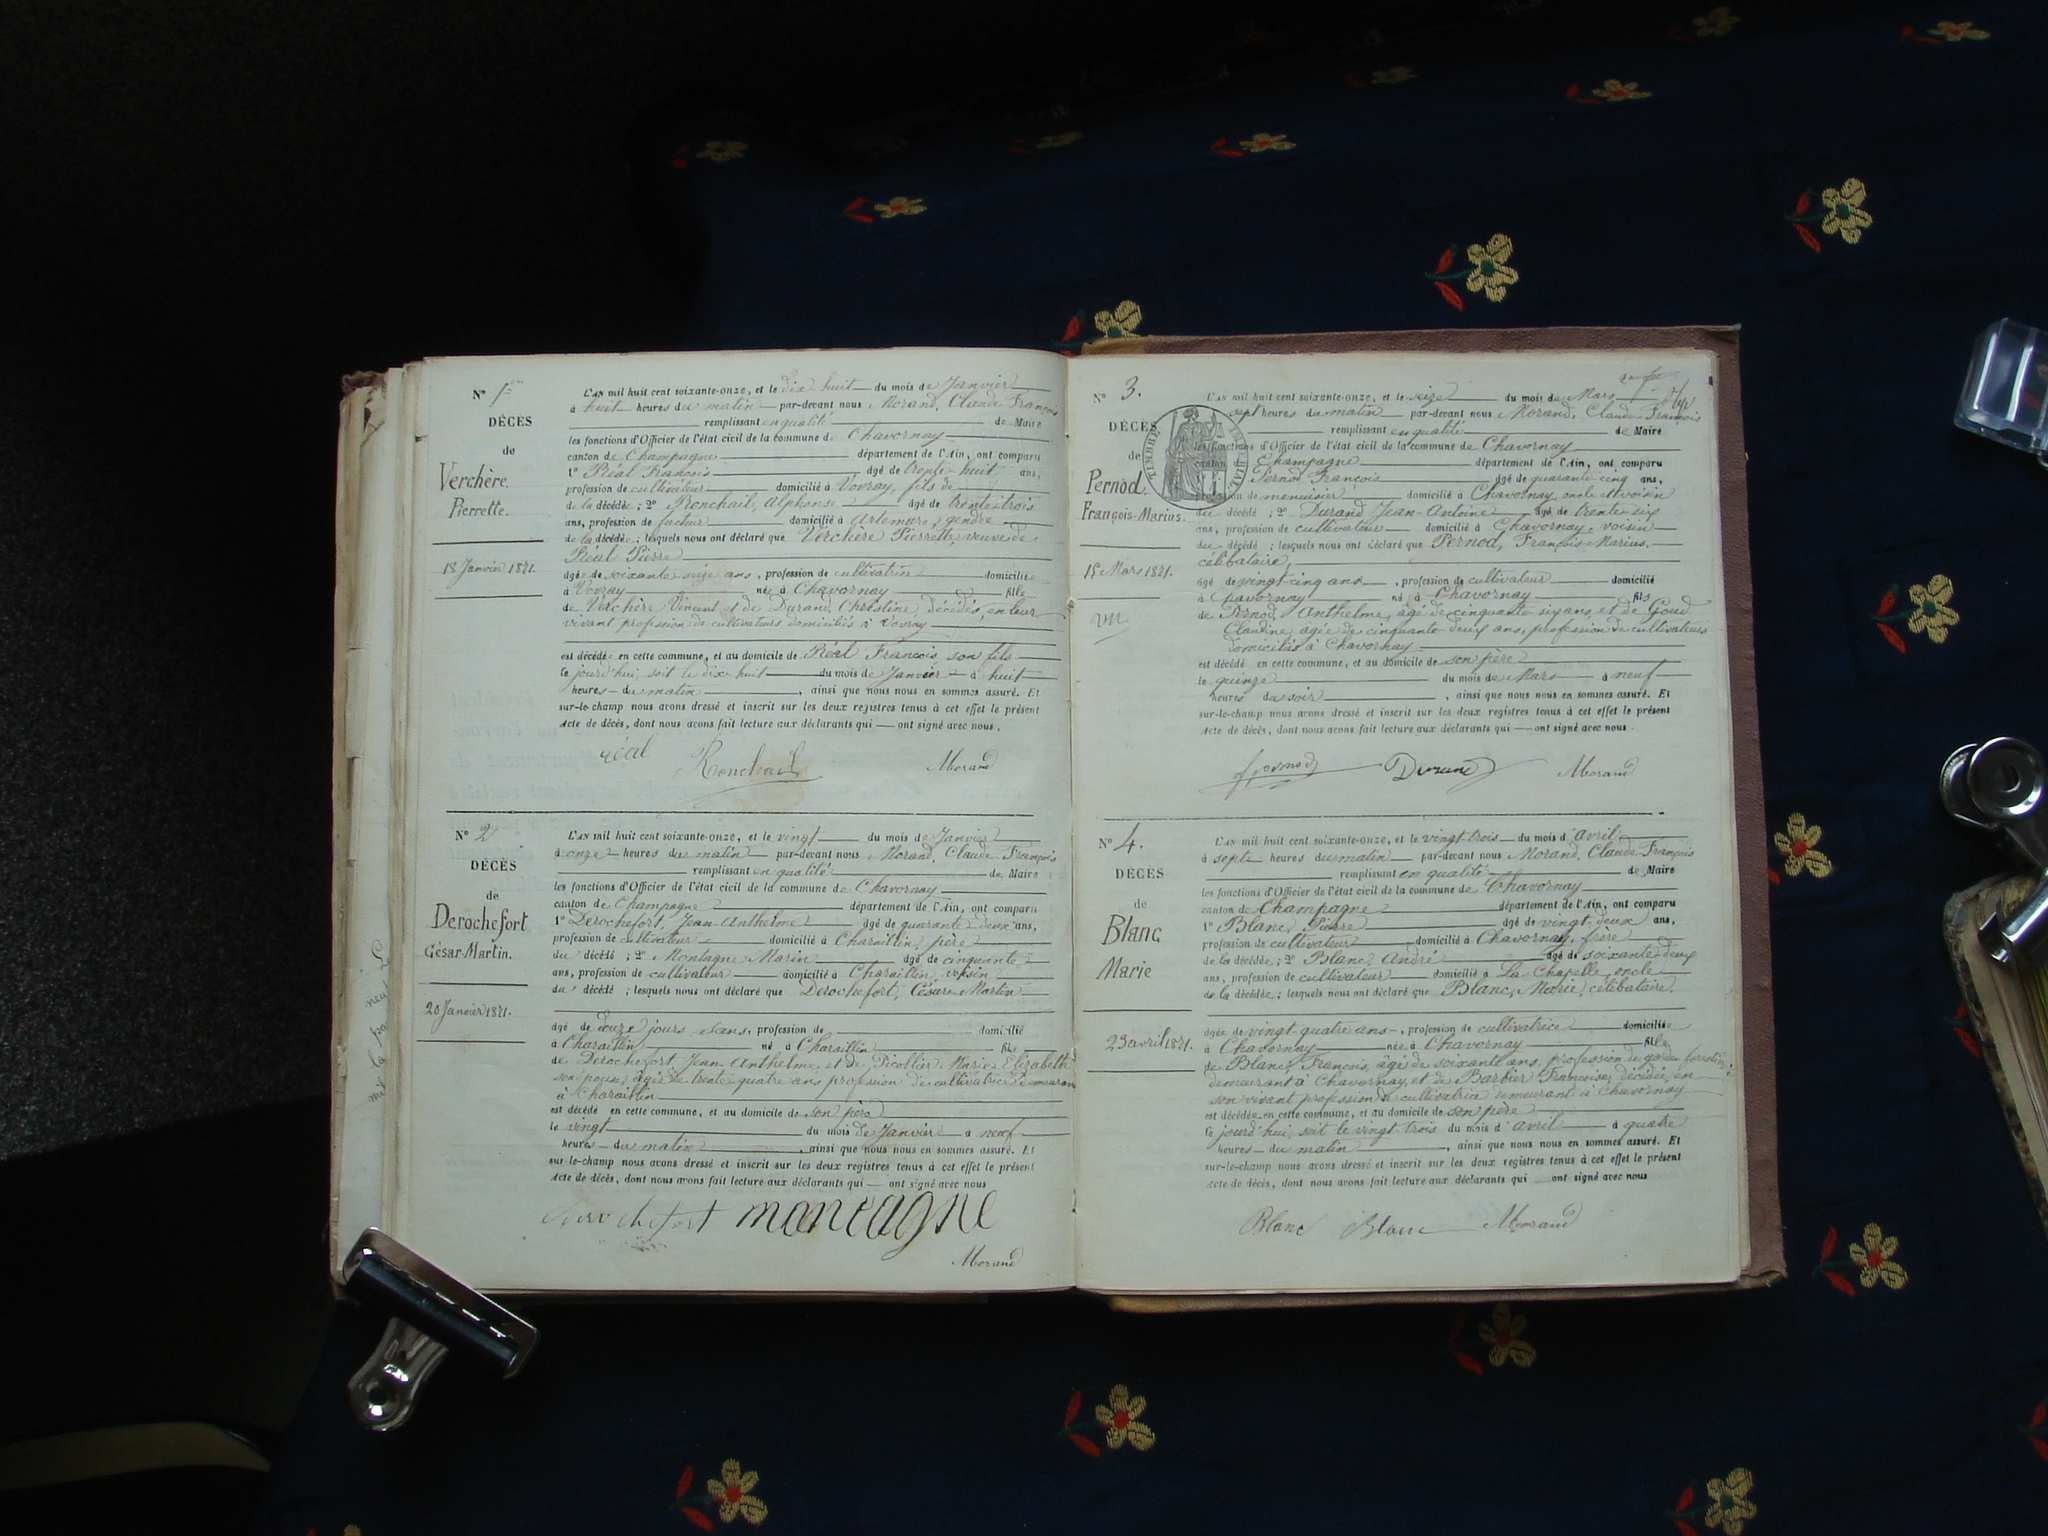 N° 1er
DÉCÈS
de
Verchère
Pierrette.
18 Janvier 1871.
L'AN mil huit cent soixante-onze, et le dix huit du mois de Janvier
à huit heures du matin par-devant nous Morand, Claude François
remplissant en qualité de Maire
les fonctions d'Officier de l'état civil de la commune de Chavornay
canton de Champagne département de l'Ain, ont comparu
1° Réal François âgé de trente huit ans,
profession de cultivateur domicilié à Vovray, fils de
de la décédée ; 2° Ronchail, Alphonse âgé de trente trois
ans, profession de facteur domicilié à Artemare, gendre
de la décédée ; lesquels nous ont déclaré que Verchère Pierrette, veuve de
Réal Pierre
âgée de soixante seize ans, profession de cultivatrice domiciliée
à Vovray née à Chavornay fille
de Verchère Vincent et de Durand Christine, décédés, en leur
vivant profession de cultivateurs domiciliés à Vovray
est décédée en cette commune, et au domicile de Réal François son fils
le jourd'hui, soit le dix huit du mois de Janvier à huit
heures du matin, ainsi que nous nous en sommes assuré. Et
sur-le-champ nous avons dressé et inscrit sur les deux registres tenus à cet effet le présent
Acte de décès, dont nous avons fait lecture aux déclarants qui — ont signé avec nous.
réal Ronchail Morand
N° 2
DÉCÈS
de
Derochefort
César-Martin.
20 Janvier 1871.
L'AN mil huit cent soixante-onze, et le vingt du mois de Janvier
à onze heures du matin par-devant nous Morand, Claude François
remplissant en qualité de Maire
les fonctions d'Officier de l'état civil de la commune de Chavornay
canton de Champagne département de l'Ain, ont comparu
1° Derochefort, Jean Anthelme âgé de quarante deux ans,
profession de cultivateur domicilié à Charaillin, père
du décédé ; 2° Montagne Marin âgé de cinquante
ans, profession de cultivateur domicilié à Charaillin, voisin
du décédé ; lesquels nous ont déclaré que Derochefort, César Martin
âgé de douze jours sans, profession de domicilié
à Charaillin né à Charaillin fils
de Derochefort Jean Anthelme et de Picollier Marie Elizabeth
son épouse, âgée de trente quatre ans profession de cultivatrice Demeurant
à Charaillin
est décédé en cette commune, et au domicile de son père
le vingt du mois de Janvier à neuf
heures du matin, ainsi que nous nous en sommes assuré. Et
sur-le-champ nous avons dressé et inscrit sur les deux registres tenus à cet effet le présent
Acte de décès, dont nous avons fait lecture aux déclarants qui — ont signé avec nous
derochefort montagne
Morand
N° 3.
DÉCÈS
de
Pernod
François-Marius.
15 Mars 1871.
TIMBRE IMPÉRIAL
L'AN mil huit cent soixante-onze, et le seize du mois de Mars
sept heures du matin par-devant nous Morand, Claude François
remplissant en qualité de Maire
les fonctions d'Officier de l'état civil de la commune de Chavornay
canton de Champagne département de l'Ain, ont comparu
Pernod François âgé de quarante cinq ans,
profession de menuisier domicilié à Chavornay, oncle et voisin
du décédé ; 2° Durand Jean-Antoine âgé de trente six
ans, profession de cultivateur domicilié à Chavornay, voisin
du décédé ; lesquels nous ont déclaré que Pernod, François-Marius.
célibataire,
âgé de vingt-cinq ans, profession de cultivateur domicilié
à Chavornay né à Chavornay fils
de Pernod Anthelme, âgé de cinquante six ans et de Goud
Claudine, âgée de cinquante deux ans, profession de cultivateurs
domiciliés à Chavornay
est décédé en cette commune, et au domicile de son père
le quinze du mois de Mars à neuf
heures du soir, ainsi que nous nous en sommes assuré. Et
sur-le-champ nous avons dressé et inscrit sur les deux registres tenus à cet effet le présent
Acte de décès, dont nous avons fait lecture aux déclarants qui — ont signé avec nous.
pernod Durand Morand
N° 4.
DÉCÈS
de
Blanc
Marie
23 avril 1871.
L'AN mil huit cent soixante-onze, et le vingt-trois du mois d'avril
à sept heures du matin par-devant nous Morand, Claude François
remplissant en qualité de Maire
les fonctions d'Officier de l'état civil de la commune de Chavornay
canton de Champagne département de l'Ain, ont comparu
1° Blanc, Pierre âgé de vingt-deux ans,
profession de cultivateur, domicilié à Chavornay, frère
de la décédée ; 2° Blanc, André âgé de soixante deux
ans, profession de cultivateur domicilié à La Chapelle, oncle
de la décédée ; lesquels nous ont déclaré que Blanc, Marie, célibataire.
âgée de vingt-quatre ans, profession de cultivatrice domiciliée
à Chavornay née à Chavornay fille
de Blanc, François, âgé de soixante ans, profession de garde forestier
demeurant à Chavornay, et de Barbier Françoise, décédée, en
son vivant profession de cultivatrice demeurant à Chavornay
est décédée en cette commune, et au domicile de son père
le jourd'hui, soit le vingt trois du mois d'avril à quatre
heures du matin, ainsi que nous nous en sommes assuré. Et
sur-le-champ nous avons dressé et inscrit sur les deux registres tenus à cet effet le présent
Acte de décès, dont nous avons fait lecture aux déclarants qui — ont signé avec nous
Blanc Blanc Morand